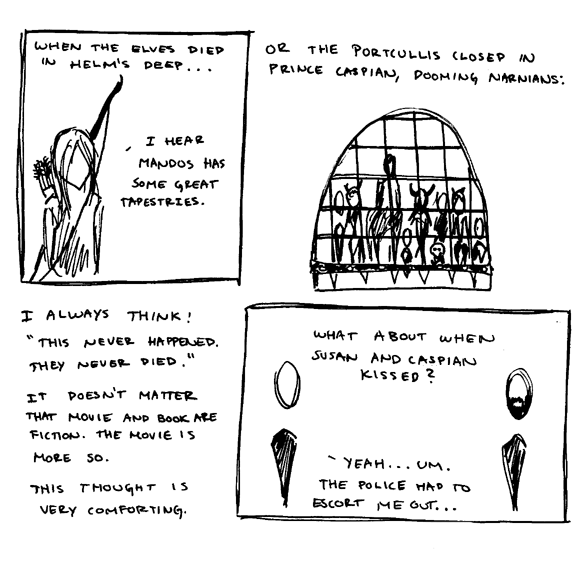 WHEN THE ELVES DIED
IN HELM'S DEEP...
I HEAR
MANDOS HAS
SOME GREAT
TAPESTRIES.
OR THE PORTCULLIS CLOSED IN
PRINCE CASPIAN, DOOMING NARNIANS:
I ALWAYS THINK:
"THIS NEVER HAPPENED.
THEY NEVER DIED."
IT DOESN'T MATTER
THAT MOVIE AND BOOK ARE
FICTION. THE MOVIE IS
MORE SO.
THIS THOUGHT IS
VERY COMFORTING.
WHAT ABOUT WHEN
SUSAN AND CASPIAN
KISSED?
YEAH... UM.
THE POLICE HAD TO
ESCORT ME OUT...